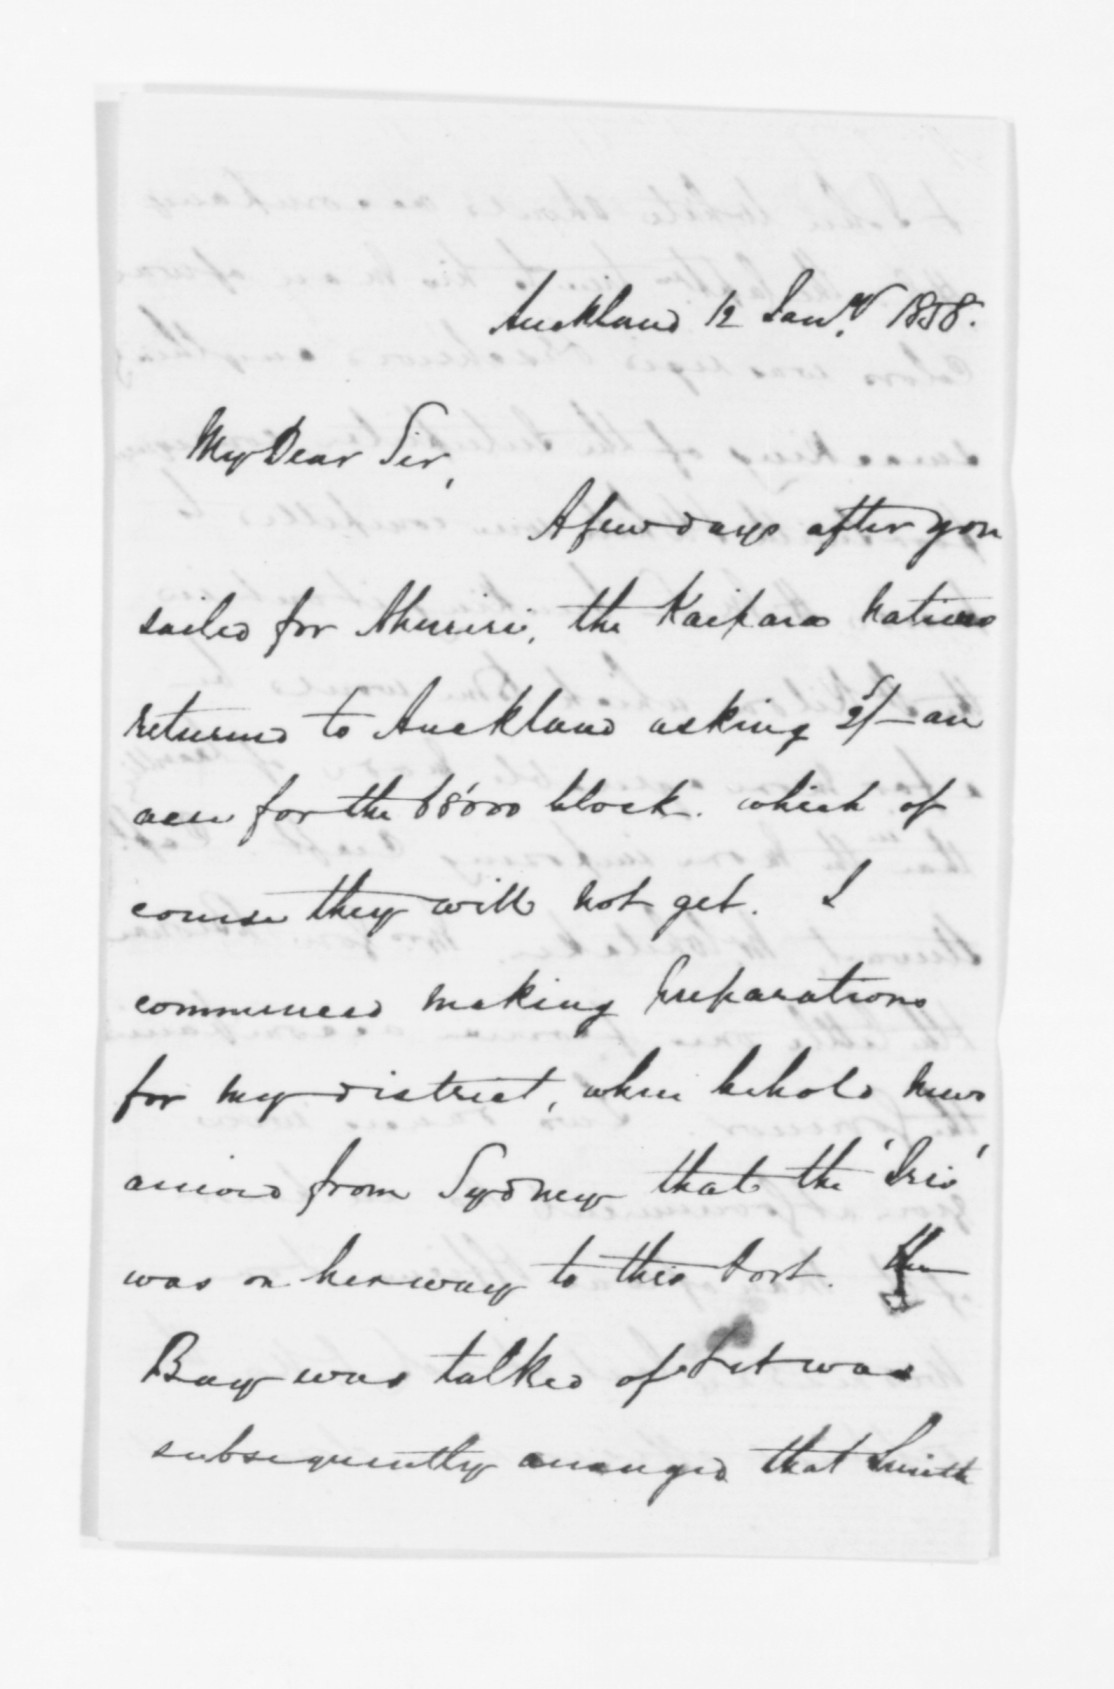 Auckland 12 Jany. 1858.
My Dear Sir,
A few days after you
sailed for Ahuriri, the Kaipara natives
returned to Auckland asking 2/- an
acre for the 68000 block. which of
course they will not get. I
commenced making preparations
for my district, when behold news
arrived from Sydney that the 'Iris'
was on her way to this Port. The
Bay was talked of & it was
subsequently arranged that Smith